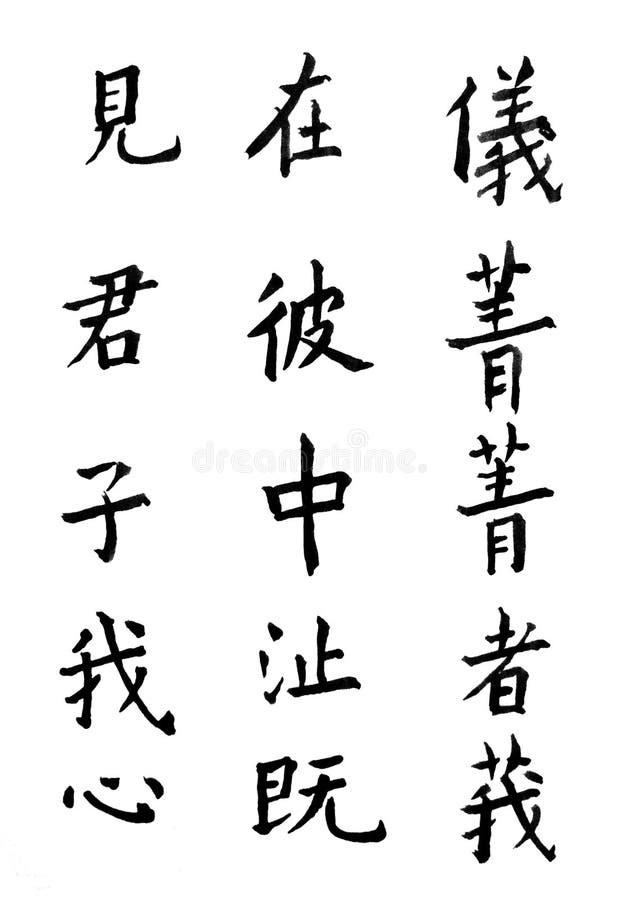 儀菁菁者莪
在彼中沚既
見君子我心
dreamstime.